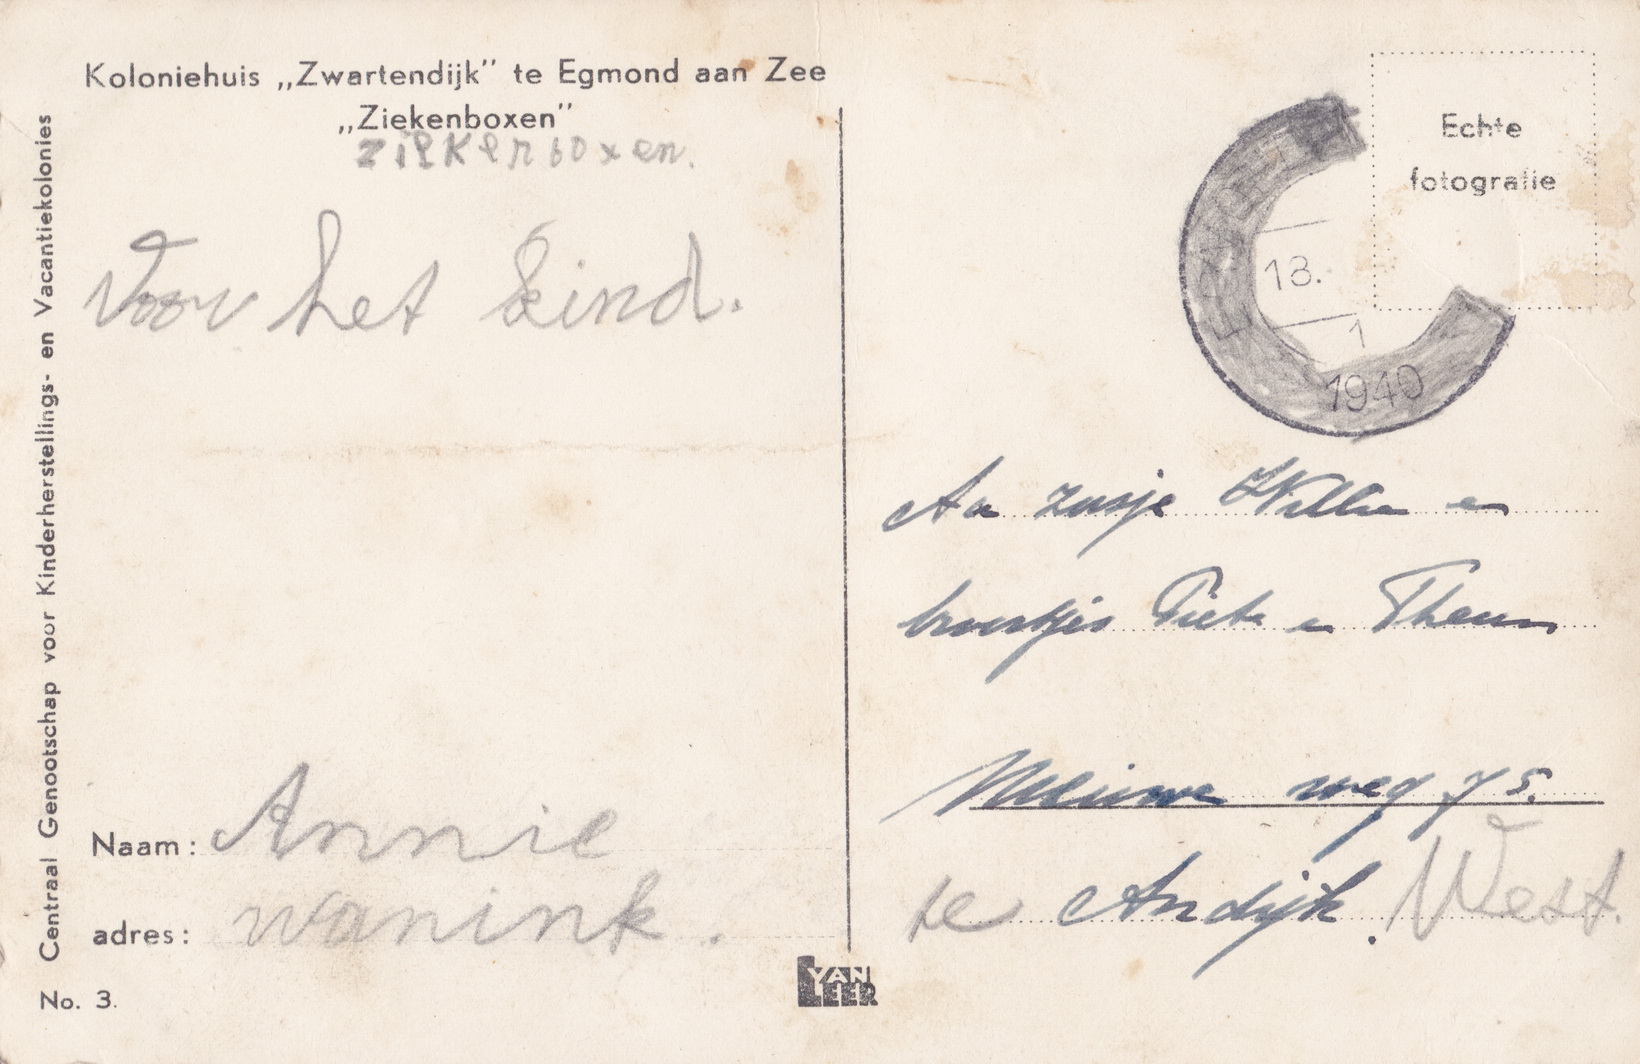 Koloniehuis „Zwartendijk” te Egmond aan Zee
„Ziekenboxen”
ziekenboxen.
Voor het kind.
Naam: Annie
adres: wanink.
No. 3.
Centraal Genootschap voor Kinderherstellings- en Vacantiekolonies
VAN LEER
Echte
fotografie
18.
1
1940
Aa zusje Willie en
broertjes Piet en Theun
Nieuwe weg 75.
te Andijk. West.